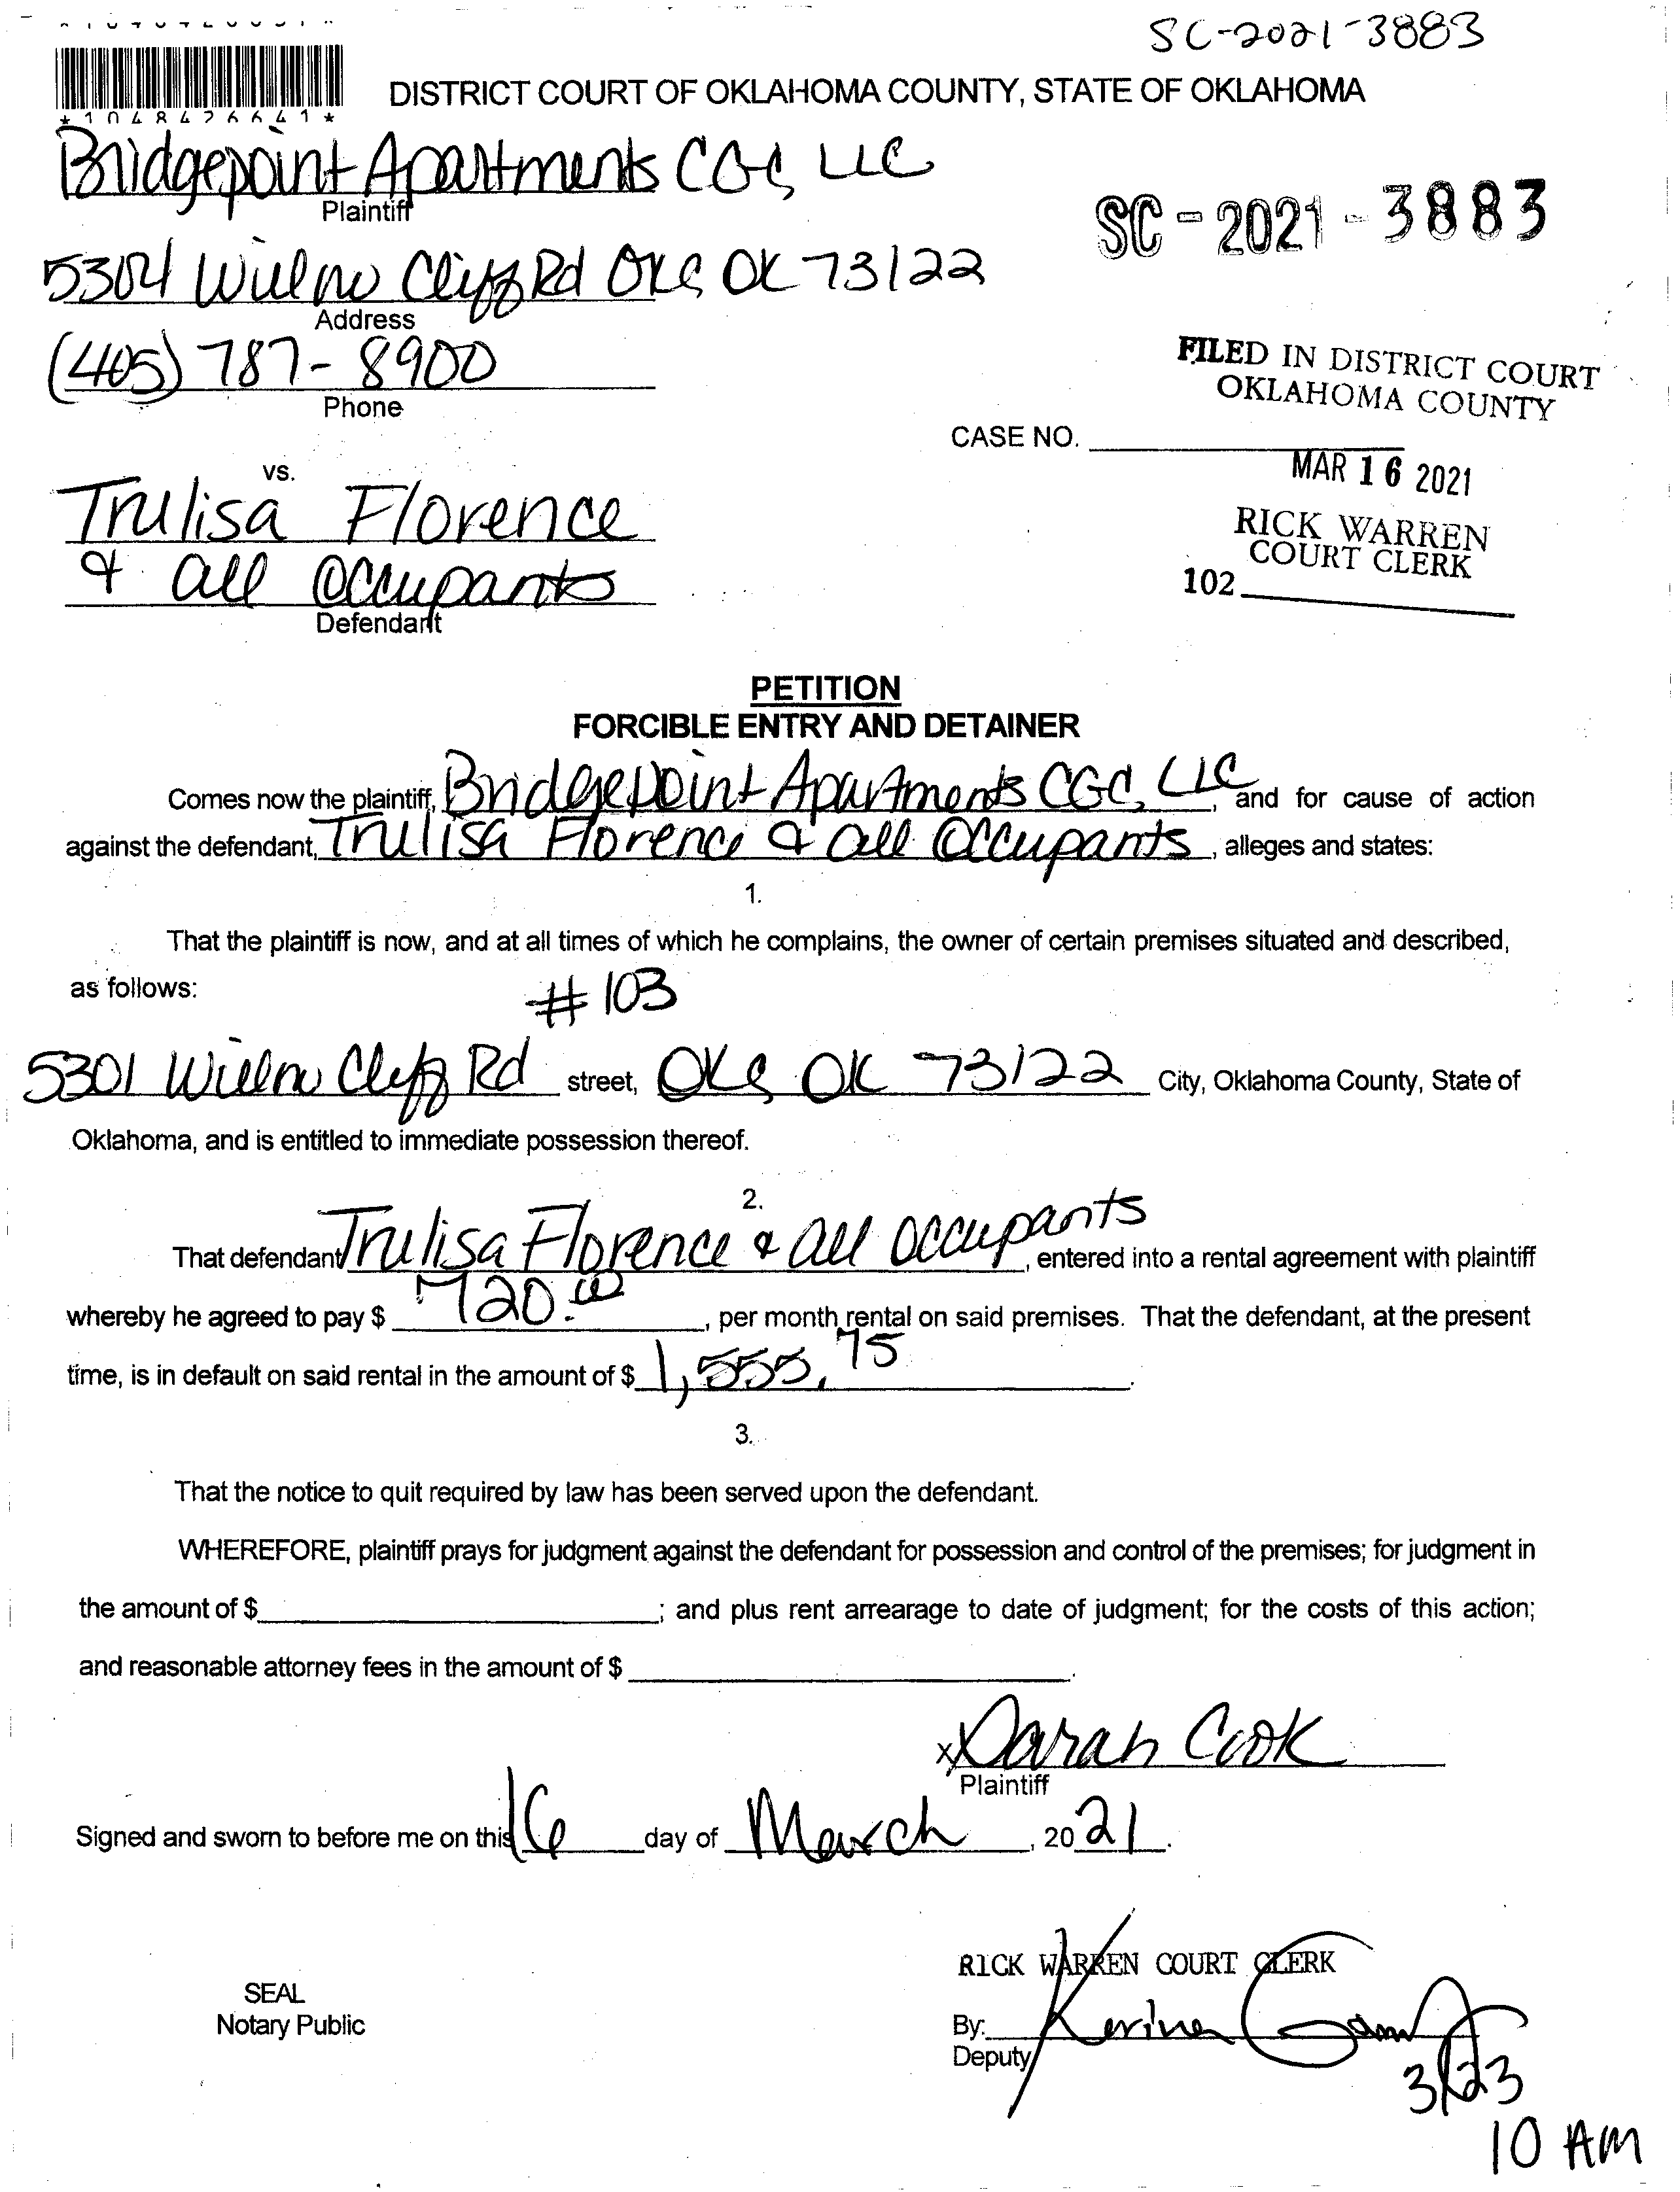 SC-2021-3883
DISTRICT COURT OF OKLAHOMA COUNTY, STATE OF OKLAHOMA
Bridgepoint Apartments CGC, LLC
Plaintiff
SC-2021-3883
5304 Willow Cliff Rd OKC OK 73122
Address
(405) 787-8900
Phone
FILED IN DISTRICT COURT
OKLAHOMA COUNTY
CASE NO.
MAR 16 2021
vs.
RICK WARREN
COURT CLERK
102
Trulisa Florence
& all Occupants
Defendant
PETITION
FORCIBLE ENTRY AND DETAINER
Comes now the plaintiff, Bridgepoint Apartments CGC, LLC, and for cause of action
against the defendant, Trulisa Florence & all Occupants, alleges and states:
1.
That the plaintiff is now, and at all times of which he complains, the owner of certain premises situated and described,
as follows:
#103
5301 Willow Cliff Rd street, OKC OK 73122 City, Oklahoma County, State of
Oklahoma, and is entitled to immediate possession thereof.
2.
That defendant Trulisa Florence & all occupants, entered into a rental agreement with plaintiff
whereby he agreed to pay $ 720.00, per month rental on said premises. That the defendant, at the present
time, is in default on said rental in the amount of $ 1,555.75.
3.
That the notice to quit required by law has been served upon the defendant.
WHEREFORE, plaintiff prays for judgment against the defendant for possession and control of the premises; for judgment in
the amount of $ ; and plus rent arrearage to date of judgment; for the costs of this action;
and reasonable attorney fees in the amount of $ .
x Sarah Cook
Plaintiff
Signed and sworn to before me on this 16 day of March, 2021.
RICK WARREN COURT CLERK
SEAL
Notary Public
By:
Deputy
3/23
10 AM